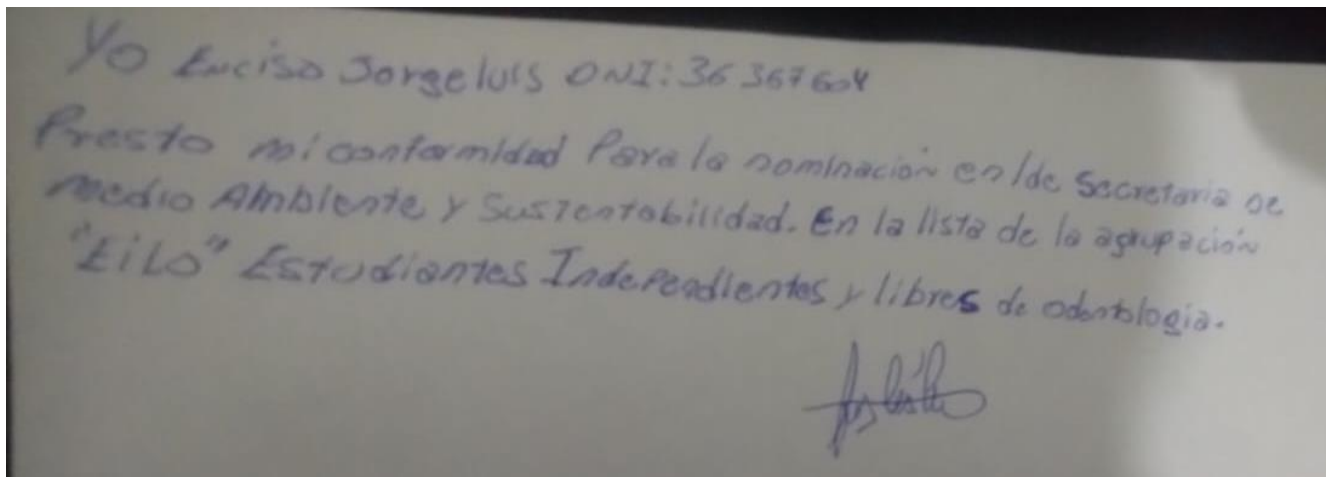 Yo Enciso Jorge luis DNI: 36 367 604
Presto mi conformidad Para la nominación en/de Secretaria de
Medio Ambiente y Sustentabilidad. En la lista de la agrupación
"EiLO" Estudiantes Independientes y libres de odontologia.